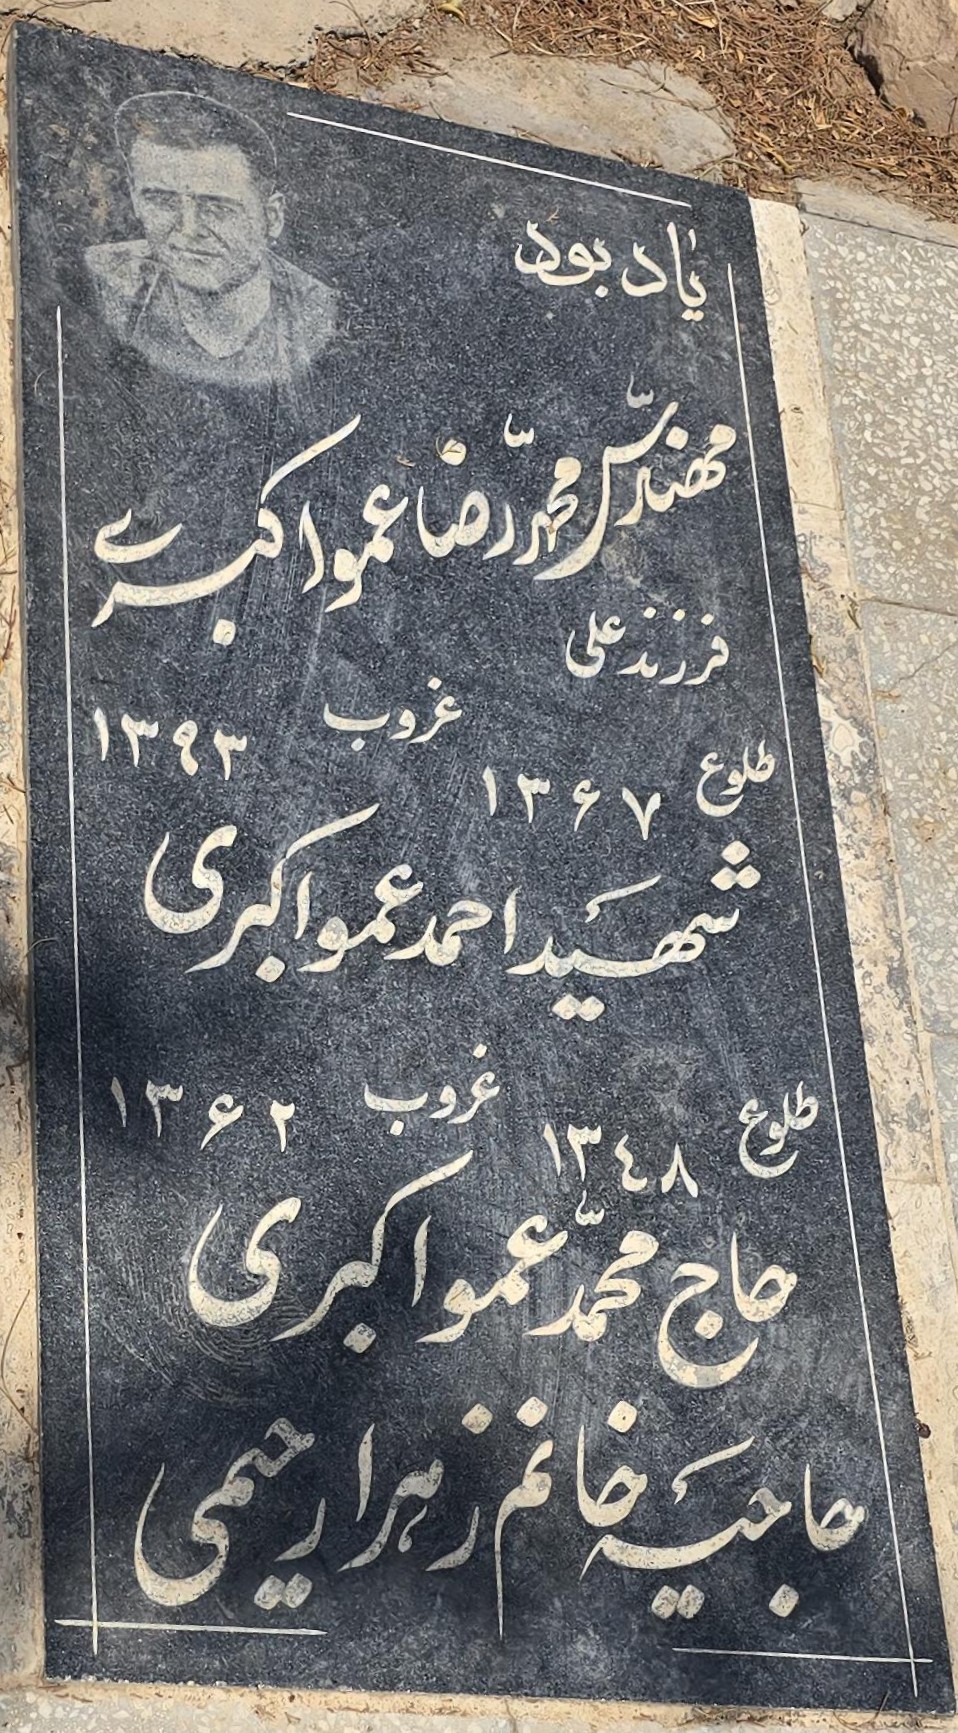 یاد بود
مهندس محمد رضا عمو اکبری
فرزند علی
طلوع ۱۳۶۷ غروب ۱۳۹۳
شهید احمد عمو اکبری
طلوع ۱۳۴۸ غروب ۱۳۶۲
حاج محمّد عمو اکبری
حاجیه خانم زهرا رحیمی